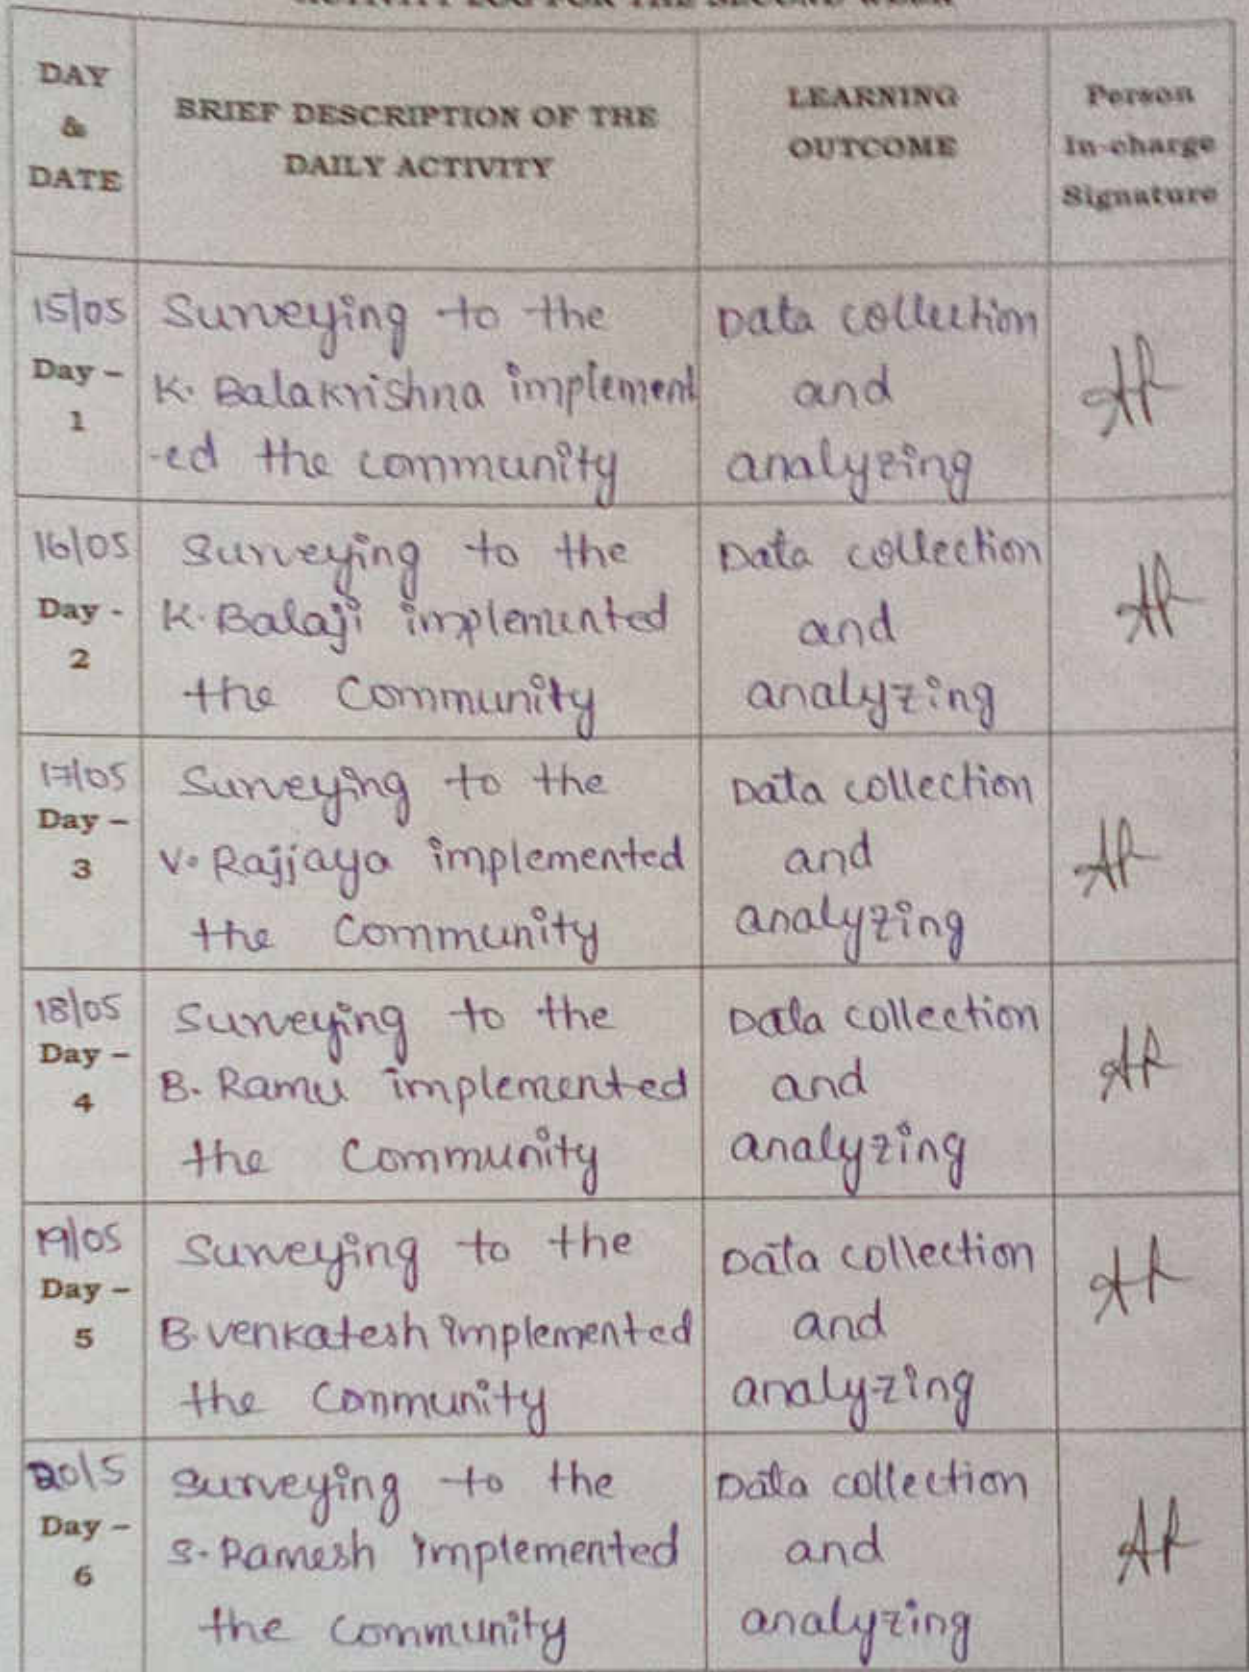 ACTIVITY LOG FOR THE SECOND WEEK
DAY
&
DATE
BRIEF DESCRIPTION OF THE
DAILY ACTIVITY
LEARNING
OUTCOME
Person
In-charge
Signature
15/05
Day –
1
Surveying to the
K. Balakrishna implement
-ed the community
Data collection
and
analyzing
16/05
Day -
2
Surveying to the
K. Balaji implemented
the Community
Data collection
and
analyzing
17/05
Day –
3
Surveying to the
V. Rajjaya implemented
the Community
Data collection
and
analyzing
18/05
Day –
4
Surveying to the
B. Ramu implemented
the Community
Data collection
and
analyzing
19/05
Day –
5
Surveying to the
B. Venkatesh implemented
the Community
Data collection
and
analyzing
20/5
Day –
6
Surveying to the
S. Ramesh implemented
the Community
Data collection
and
analyzing